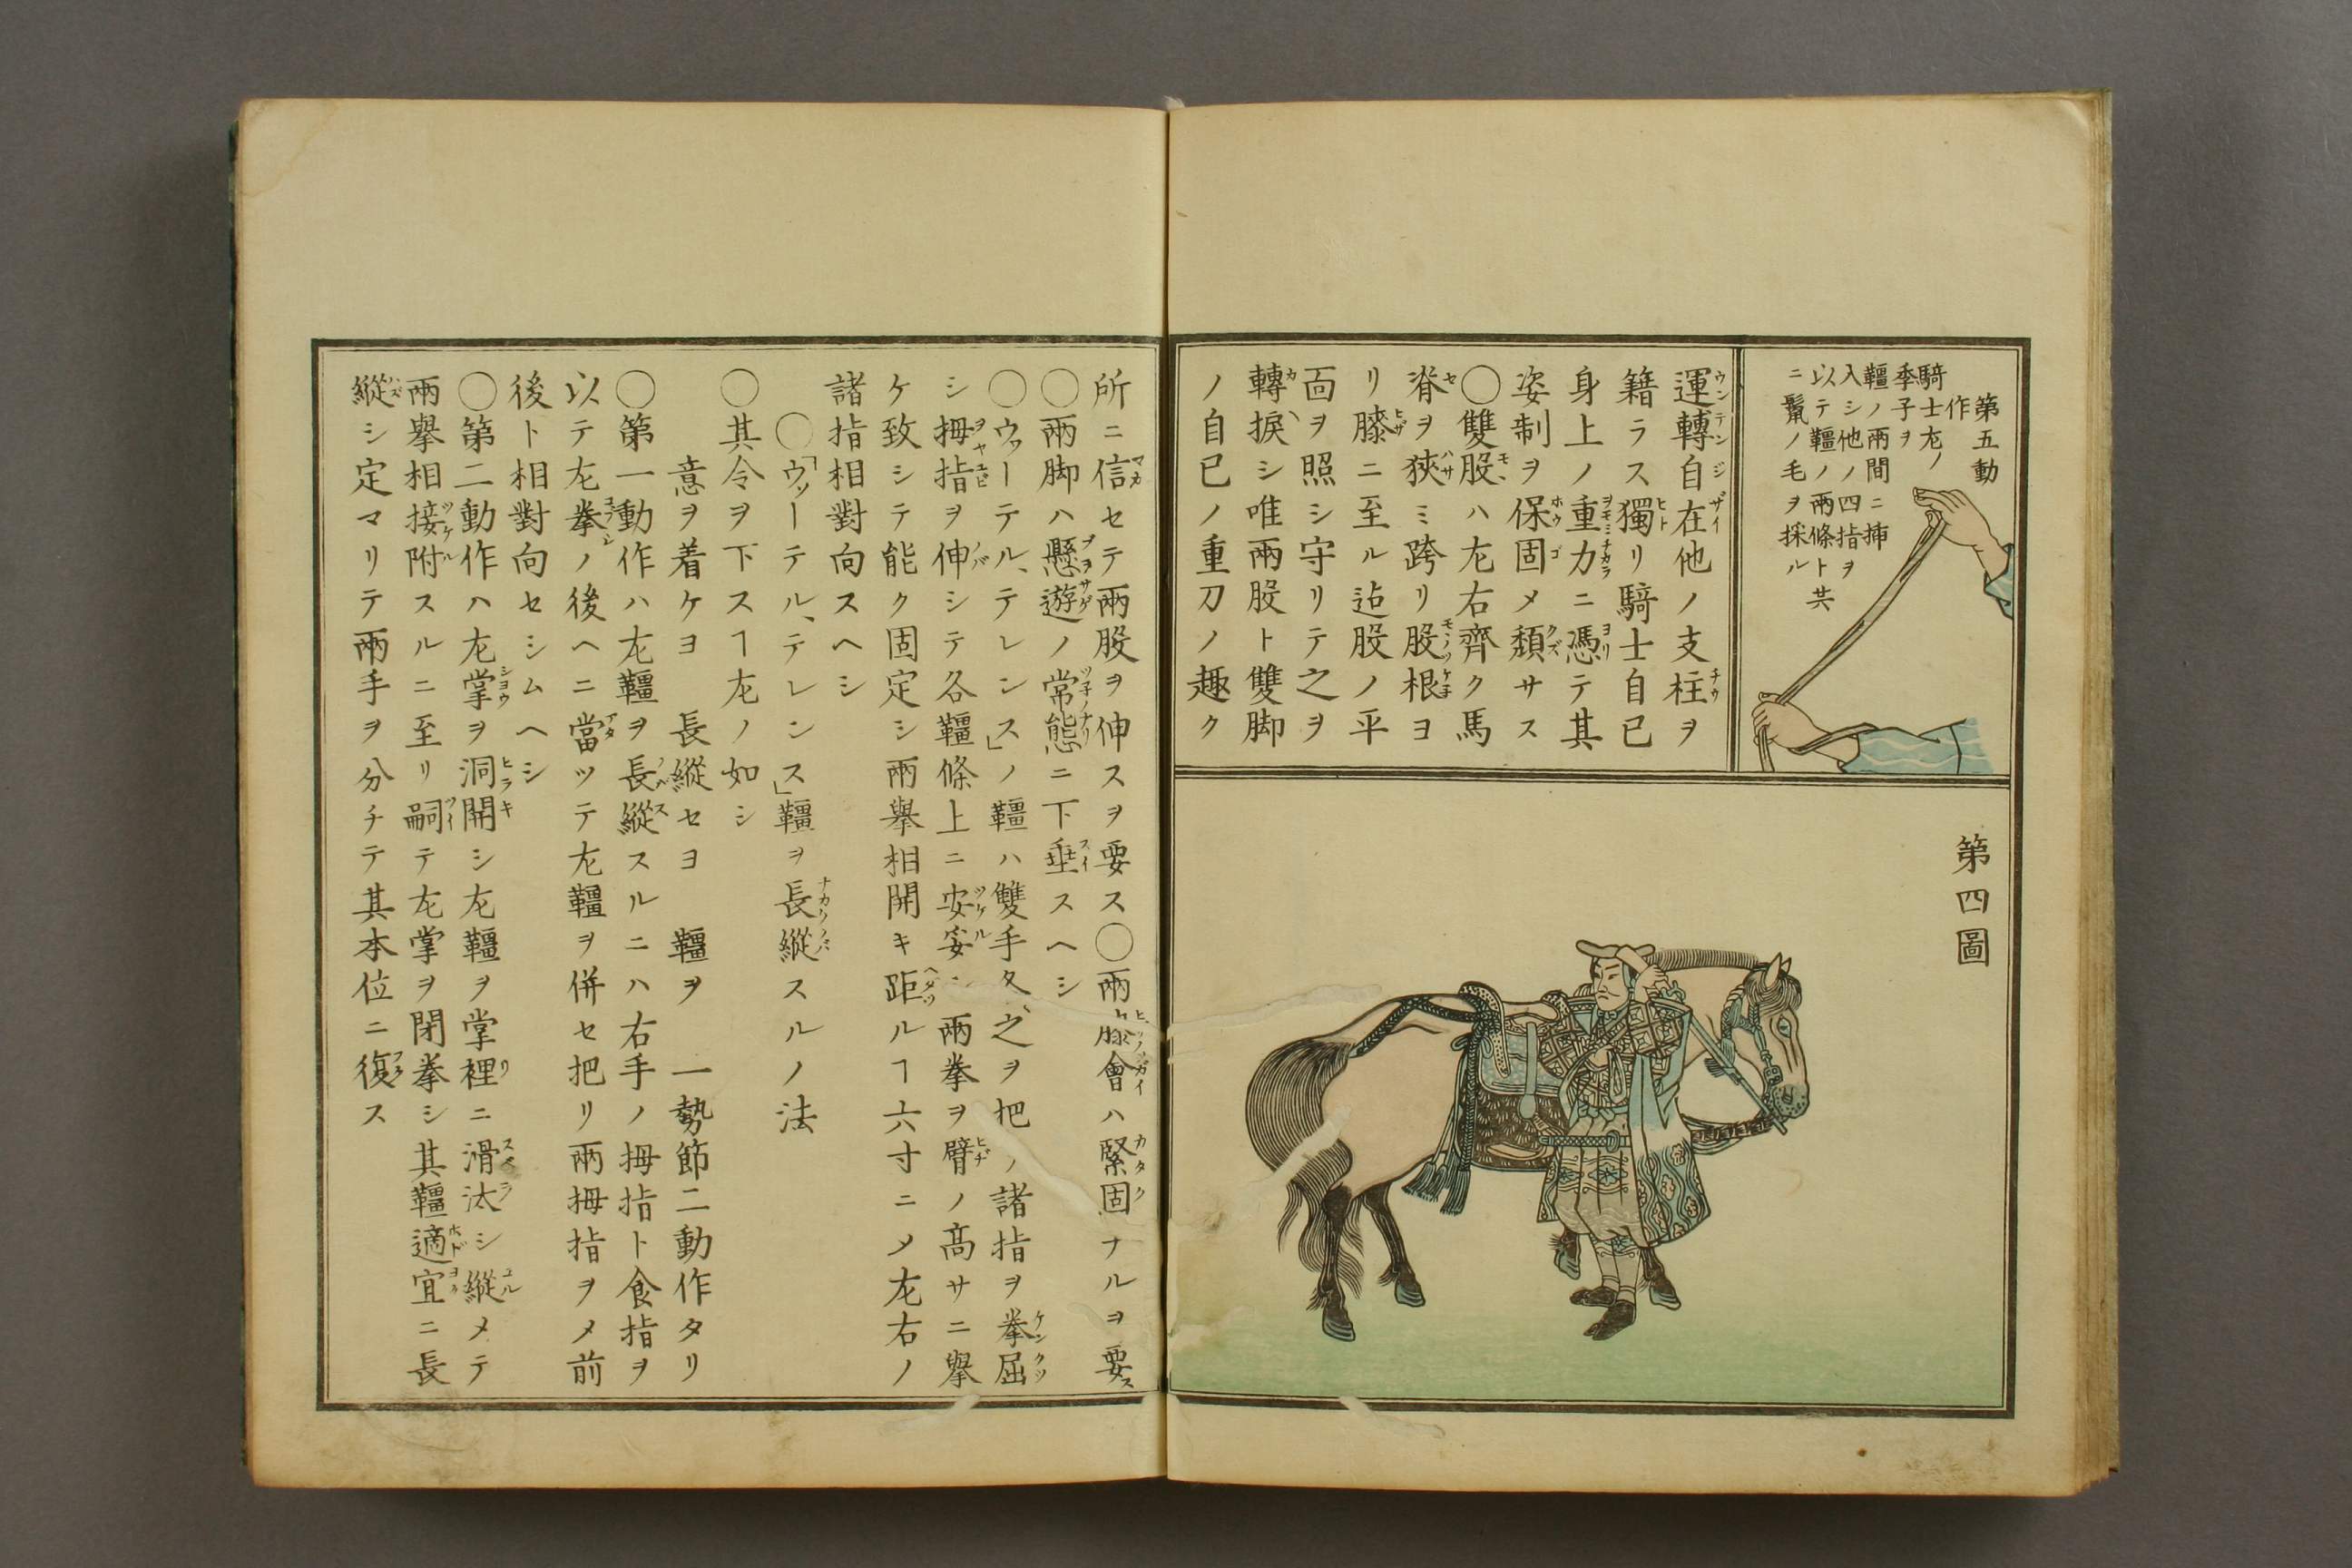 第五動
作
騎士左ノ
季子ヲ
韁ノ兩間ニ挿
入シ他ノ四指ヲ
以テ韁ノ兩條ト共
ニ鬣ノ毛ヲ採ル
運轉自在他ノ支柱ヲ
籍ラス獨リ騎士自己
身上ノ重力ニ憑テ其
姿制ヲ保固メ頽サス
○雙股ハ左右齊ク馬
脊ヲ狹ミ跨リ股根ヨ
リ膝ニ至ル迠股ノ平
面ヲ照シ守リテ之ヲ
轉捩シ唯兩股ト雙脚
ノ自已ノ重刀ノ趣ク
第四圖
所ニ信セテ兩股ヲ伸スヲ要ス○兩膝會ハ緊固ナルヲ要ス
○兩脚ハ懸遊ノ常態ニ下垂スヘシ
○ウァーテル、テレンス」ノ韁ハ雙手タ之ヲ把ノ諸指ヲ拳屈
シ拇指ヲ伸シテ各韁條上ニ安妥シ兩拳ヲ臂ノ髙サニ擧
ケ致シテ能ク固定シ兩擧相開キ距ルヿ六寸ニメ左右ノ
諸指相對向スヘシ
○「ウァーテル、テレンス」韁ヲ長縱スルノ法
○其令ヲ下スヿ左ノ如シ
意ヲ着ケヨ 長縱セヨ 韁ヲ 一勢節二動作タリ
○第一動作ハ左韁ヲ長縱スルニハ右手ノ拇指ト食指ヲ
以テ左拳ノ後ヘニ當ツテ左韁ヲ併セ把リ兩拇指ヲメ前
後ト相對向セシムヘシ
○第二動作ハ左掌ヲ洞開シ左韁ヲ掌裡ニ滑汰シ縱メテ
兩擧相接附スルニ至リ嗣テ左掌ヲ閉拳シ其韁適宜ニ長
縱シ定マリテ兩手ヲ分チテ其本位ニ復ス